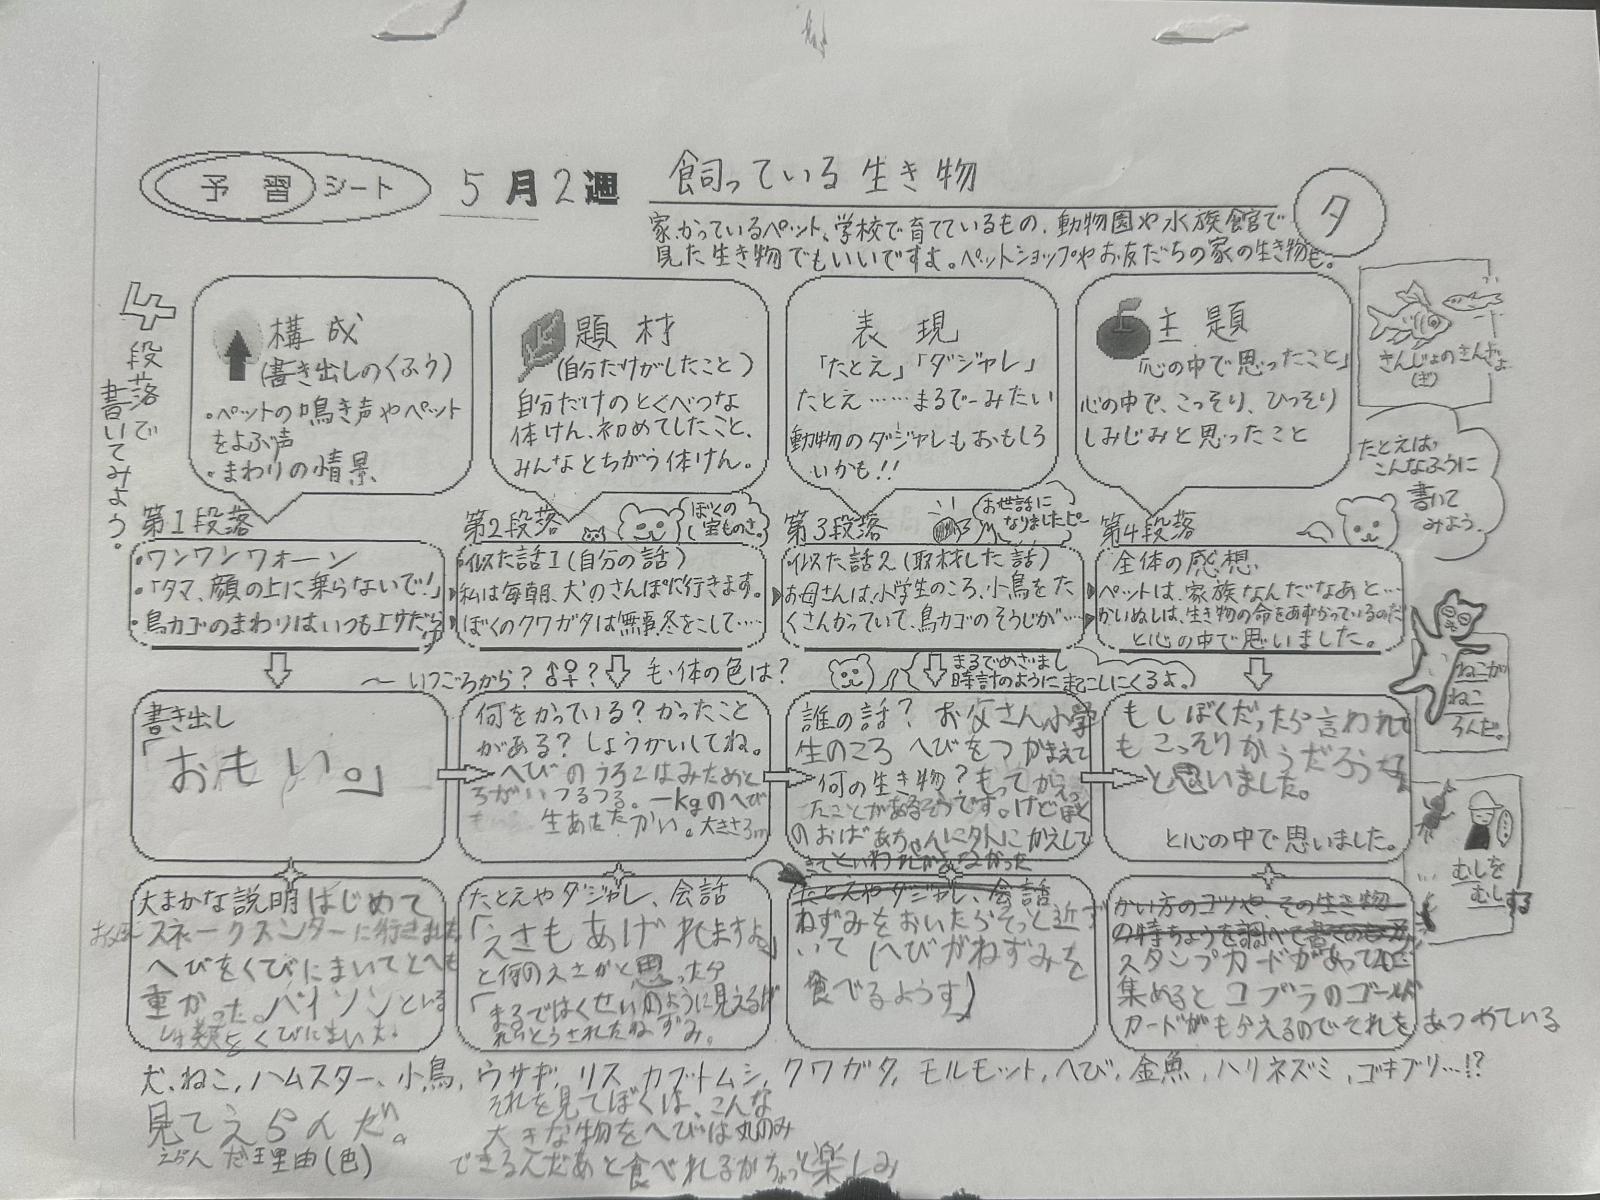 予習シート 5月2週 飼っている生き物
タ
家かっているペット、学校で育てているもの、動物園や水族館で
見た生き物でもいいですよ。ペットショップやお友だちの家の生き物も。
4段落で
書いてみよう。
構成
(書き出しのくふう)
・ペットの鳴き声やペット
をよぶ声
・まわりの情景
題材
(自分だけがしたこと)
自分だけのとくべつな
体けん、初めてしたこと、
みんなとちがう体けん。
表現
「たとえ」「ダジャレ」
たとえ……まるで〜みたい
動物のダジャレもおもしろ
いかも!!
主題
「心の中で思ったこと」
心の中で、こっそり、ひっそり
しみじみと思ったこと
さんじょのきんぎょ
たとえば、
こんなふうに
書いて
みよう。
第1段落
・ワンワンワォーン
・「タマ、顔の上に乗らないで!」
・鳥カゴのまわりはいつもエサだらけ
第2段落
ぼくの
宝ものさ。
似た話1(自分の話)
私は毎朝、犬のさんぽに行きます。
ぼくのクワガタは無事、冬をこして……
第3段落
お世話に
なりましたピー
似た話2(取材した話)
お母さんは、小学生のころ、小鳥をた
くさんかっていて、鳥カゴのそうじが……
第4段落
全体の感想
ペットは、家族なんだなあと……
かいぬしは、生き物の命をあずかっているのだ
と心の中で思いました。
〜いつごろから?♂♀? 毛・体の色は?
まるでめざまし
時計のように起こしにくるよ。
ねこが
ねこ
ろんだ。
書き出し
「おもい。」
何をかっている?かったこと
がある?しょうかいしてね。
へびのうろこはみためと
ちがいつるつる。一kgのへび
生あたたかい。大きさ3m
誰の話?お父さん小学
生のころ へびをつかまえて
何の生き物?もってかえっ
たことがあるそうです。けどぼく
のおばあちゃんに外にかえして
きてといわれ
もしぼくだったら言われて
もこっそりかうだろうな
と思いました。
と心の中で思いました。
むしを
むしする
大まかな説明はじめて
スネークスンターに行きました
へびをくびにまいてとても
重かった。パイソンという
しゅ類をくびにまいた。
たとえやダジャレ、会話
「えさもあげれますよ」
と何のえさかと思ったら
「まるではくせいのように見えるが
れいとうされたねずみ。
たとえやダジャレ、会話
ねずみをおいたらそっと近ず
いて(へびがねずみを
食べるようす)
かい方のコツや、その生き物
の特ちょうを調べて書くのも
スタンプカードがあって20こ
集めるとコブラのゴールド
カードがもらえるのでそれをあつめている
犬、ねこ、ハムスター、小鳥、ウサギ、リス、カブトムシ、クワガタ、モルモット、へび、金魚、ハリネズミ、ゴキブリ…!?
見てえらんだ。
えらんだ理由(色)
それを見てぼくは、こんな
大きな物をへびは丸のみ
できるんだあと食べれるかちょっと楽しみ